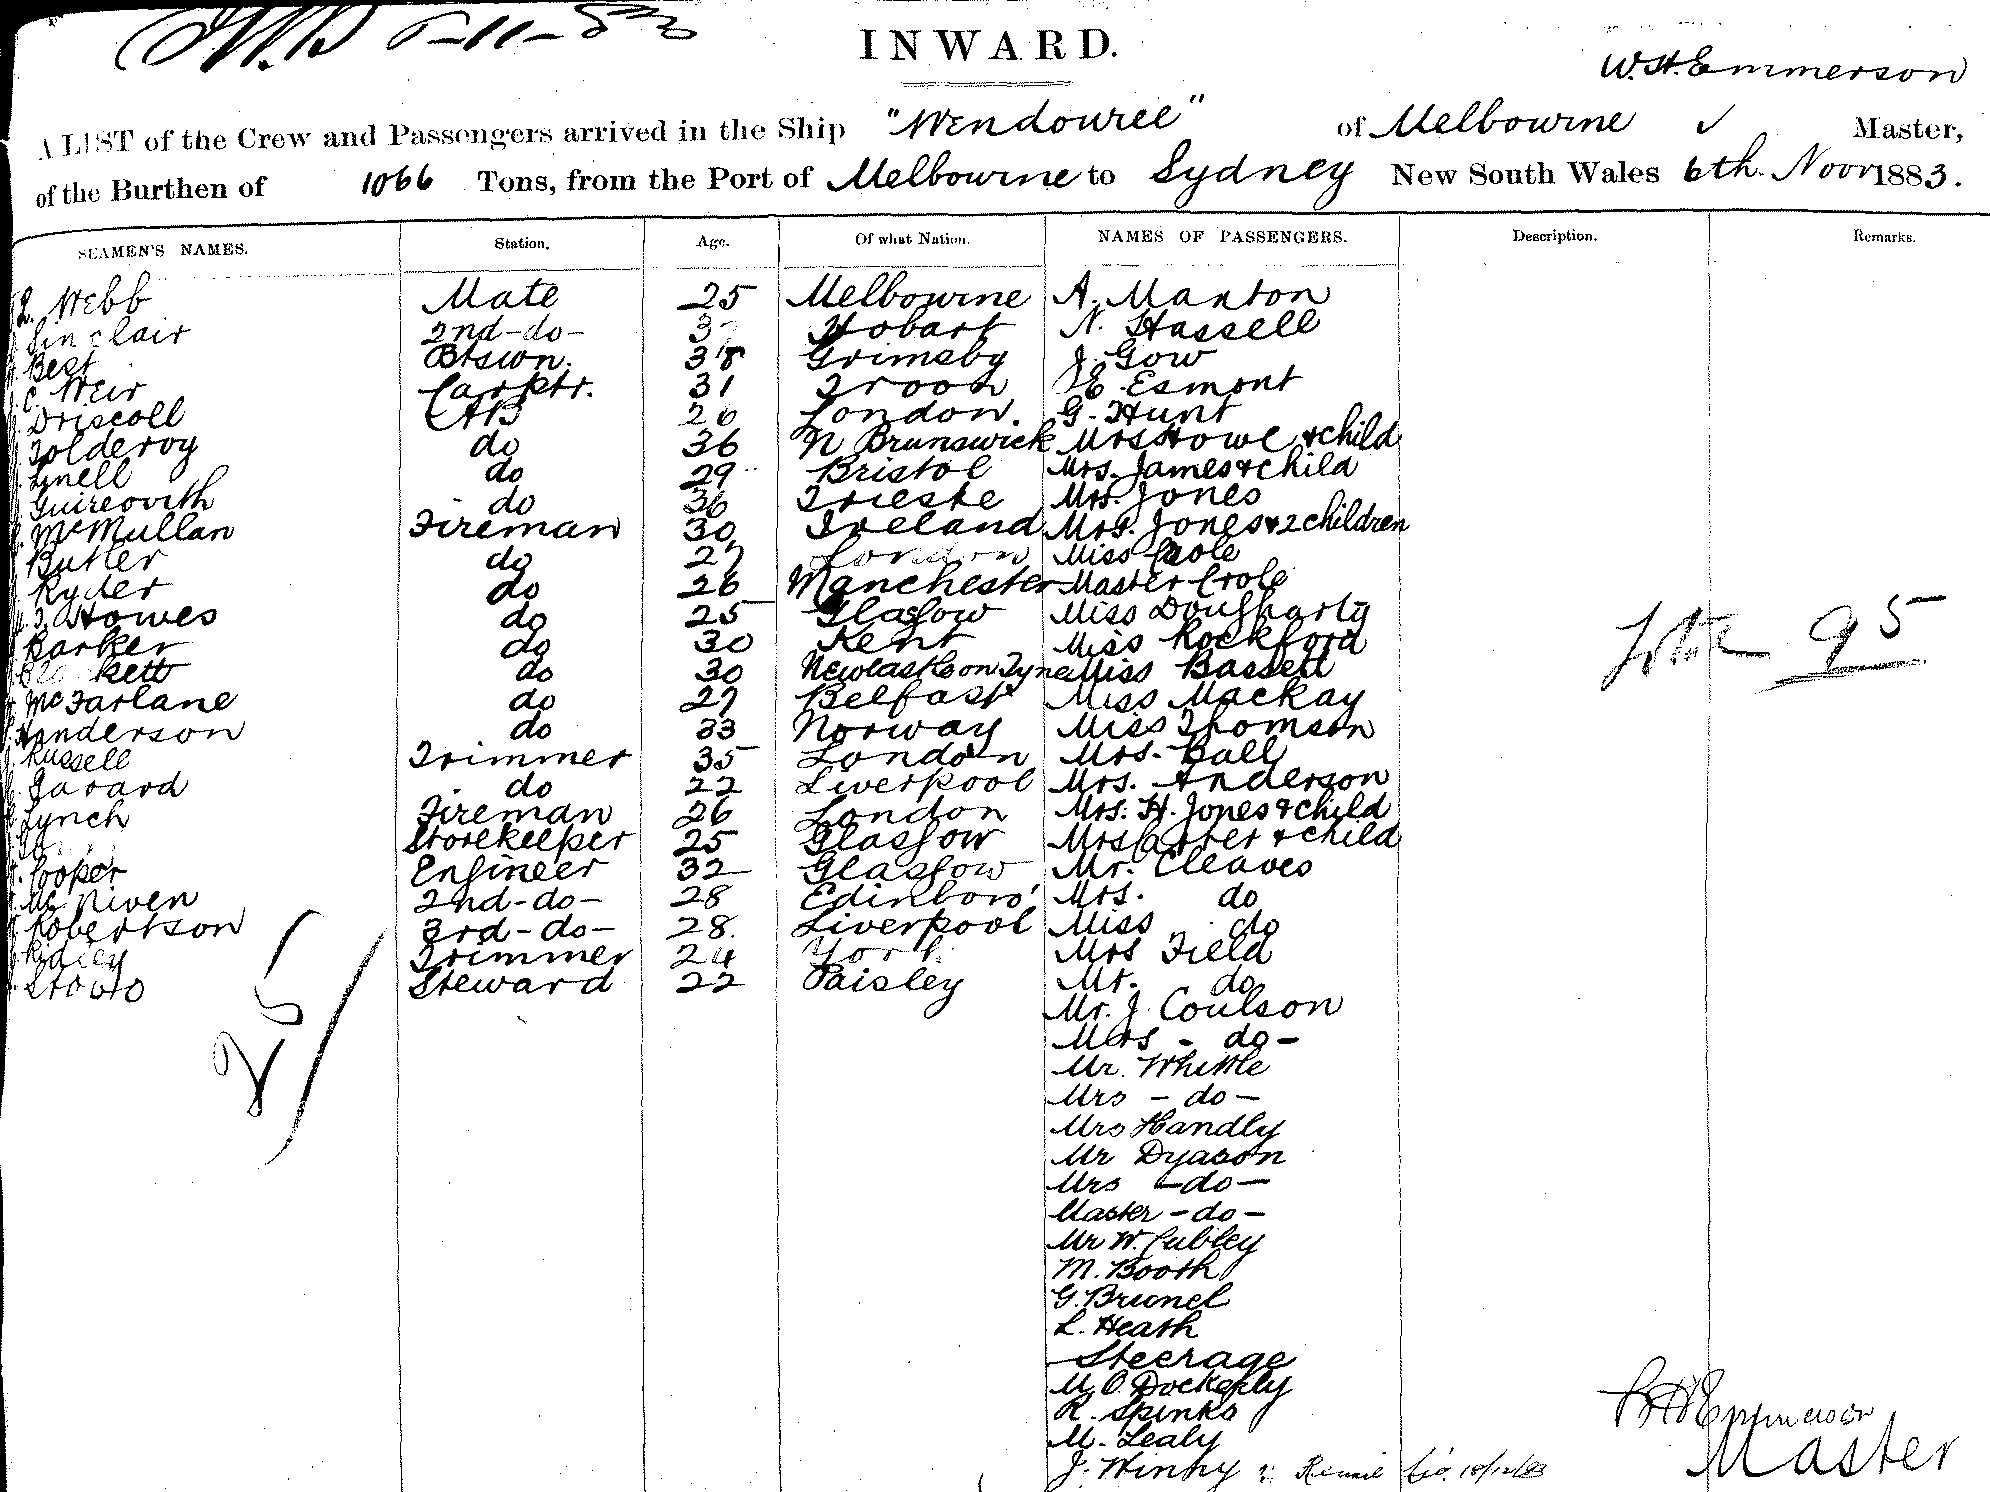 5-11-83
INWARD.
W. H. Emmerson
A LIST of the Crew and Passengers arrived in the Ship "Wendouree" of Melbourne ✓ Master,
of the Burthen of 1066 Tons, from the Port of Melbourne to Sydney New South Wales 6th. Novr 1883.
SEAMEN'S NAMES. Station. Age. Of what Nation. NAMES OF PASSENGERS. Description. Remarks.
Webb Mate 25 Melbourne A. Manton
Sinclair 2nd-do- Hobart N. Hassell
Best Btswn. 38 Grimsby J. Gow
C Weir Carptr. 31 Troon E. Esmont
Driscoll AB 26 London. G. Hunt
Tolderoy do 36 N Brunswick Mrs Howe & child
Linell do 29 Bristol Mrs. James & child
Guireovith do 36 Trieste Mrs. Jones
McMullan Fireman 30 Ireland Mrs. Jones & 2 children
Butler do 27 London Miss Crole
Ryder do 26 Manchester Master Crole
Howes do 25 Glasgow Miss Dougharty
Parker do 30 Kent Miss Rockford
do 30 Newcastle on Tyne Miss Bassett
McFarlane do 27 Belfast Miss Mackay
Handerson do 33 Norway Miss Thomson
Russell Trimmer 35 London Mrs. Ball
Garard do 22 Liverpool Mrs. Anderson
Lynch Fireman 26 London Mrs. H. Jones & child
Storekeeper 25 Glasgow Mrs Carter & child
Cooper Engineer 32 Glasgow Mr. Cleaves
McNiven 2nd-do- 28 Edinboro' Mrs. do
Robertson 3rd-do- 28. Liverpool Miss do
Ridley Trimmer 24 York Mrs Field
Steward 22 Paisley Mr. do
Mr. J. Coulson
Mrs - do -
Mr. Whittle
Mrs - do -
Mrs Handly
Mr Dyason
Mrs - do -
Master - do -
Mr W. Cubley
M. Booth
G. Brunel
L. Heath
Steerage
M. O. Dockerly
R. Spinks
M. Lealy
J. Winny
25
Total 95
W H Emmerson
Master